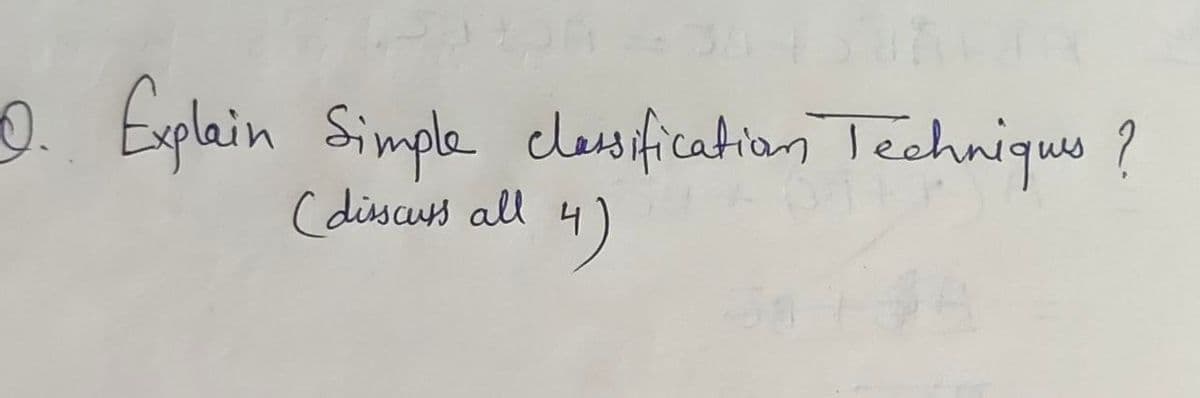 Q. Explain Simple classification Techniques ?
(disscuss all 4)